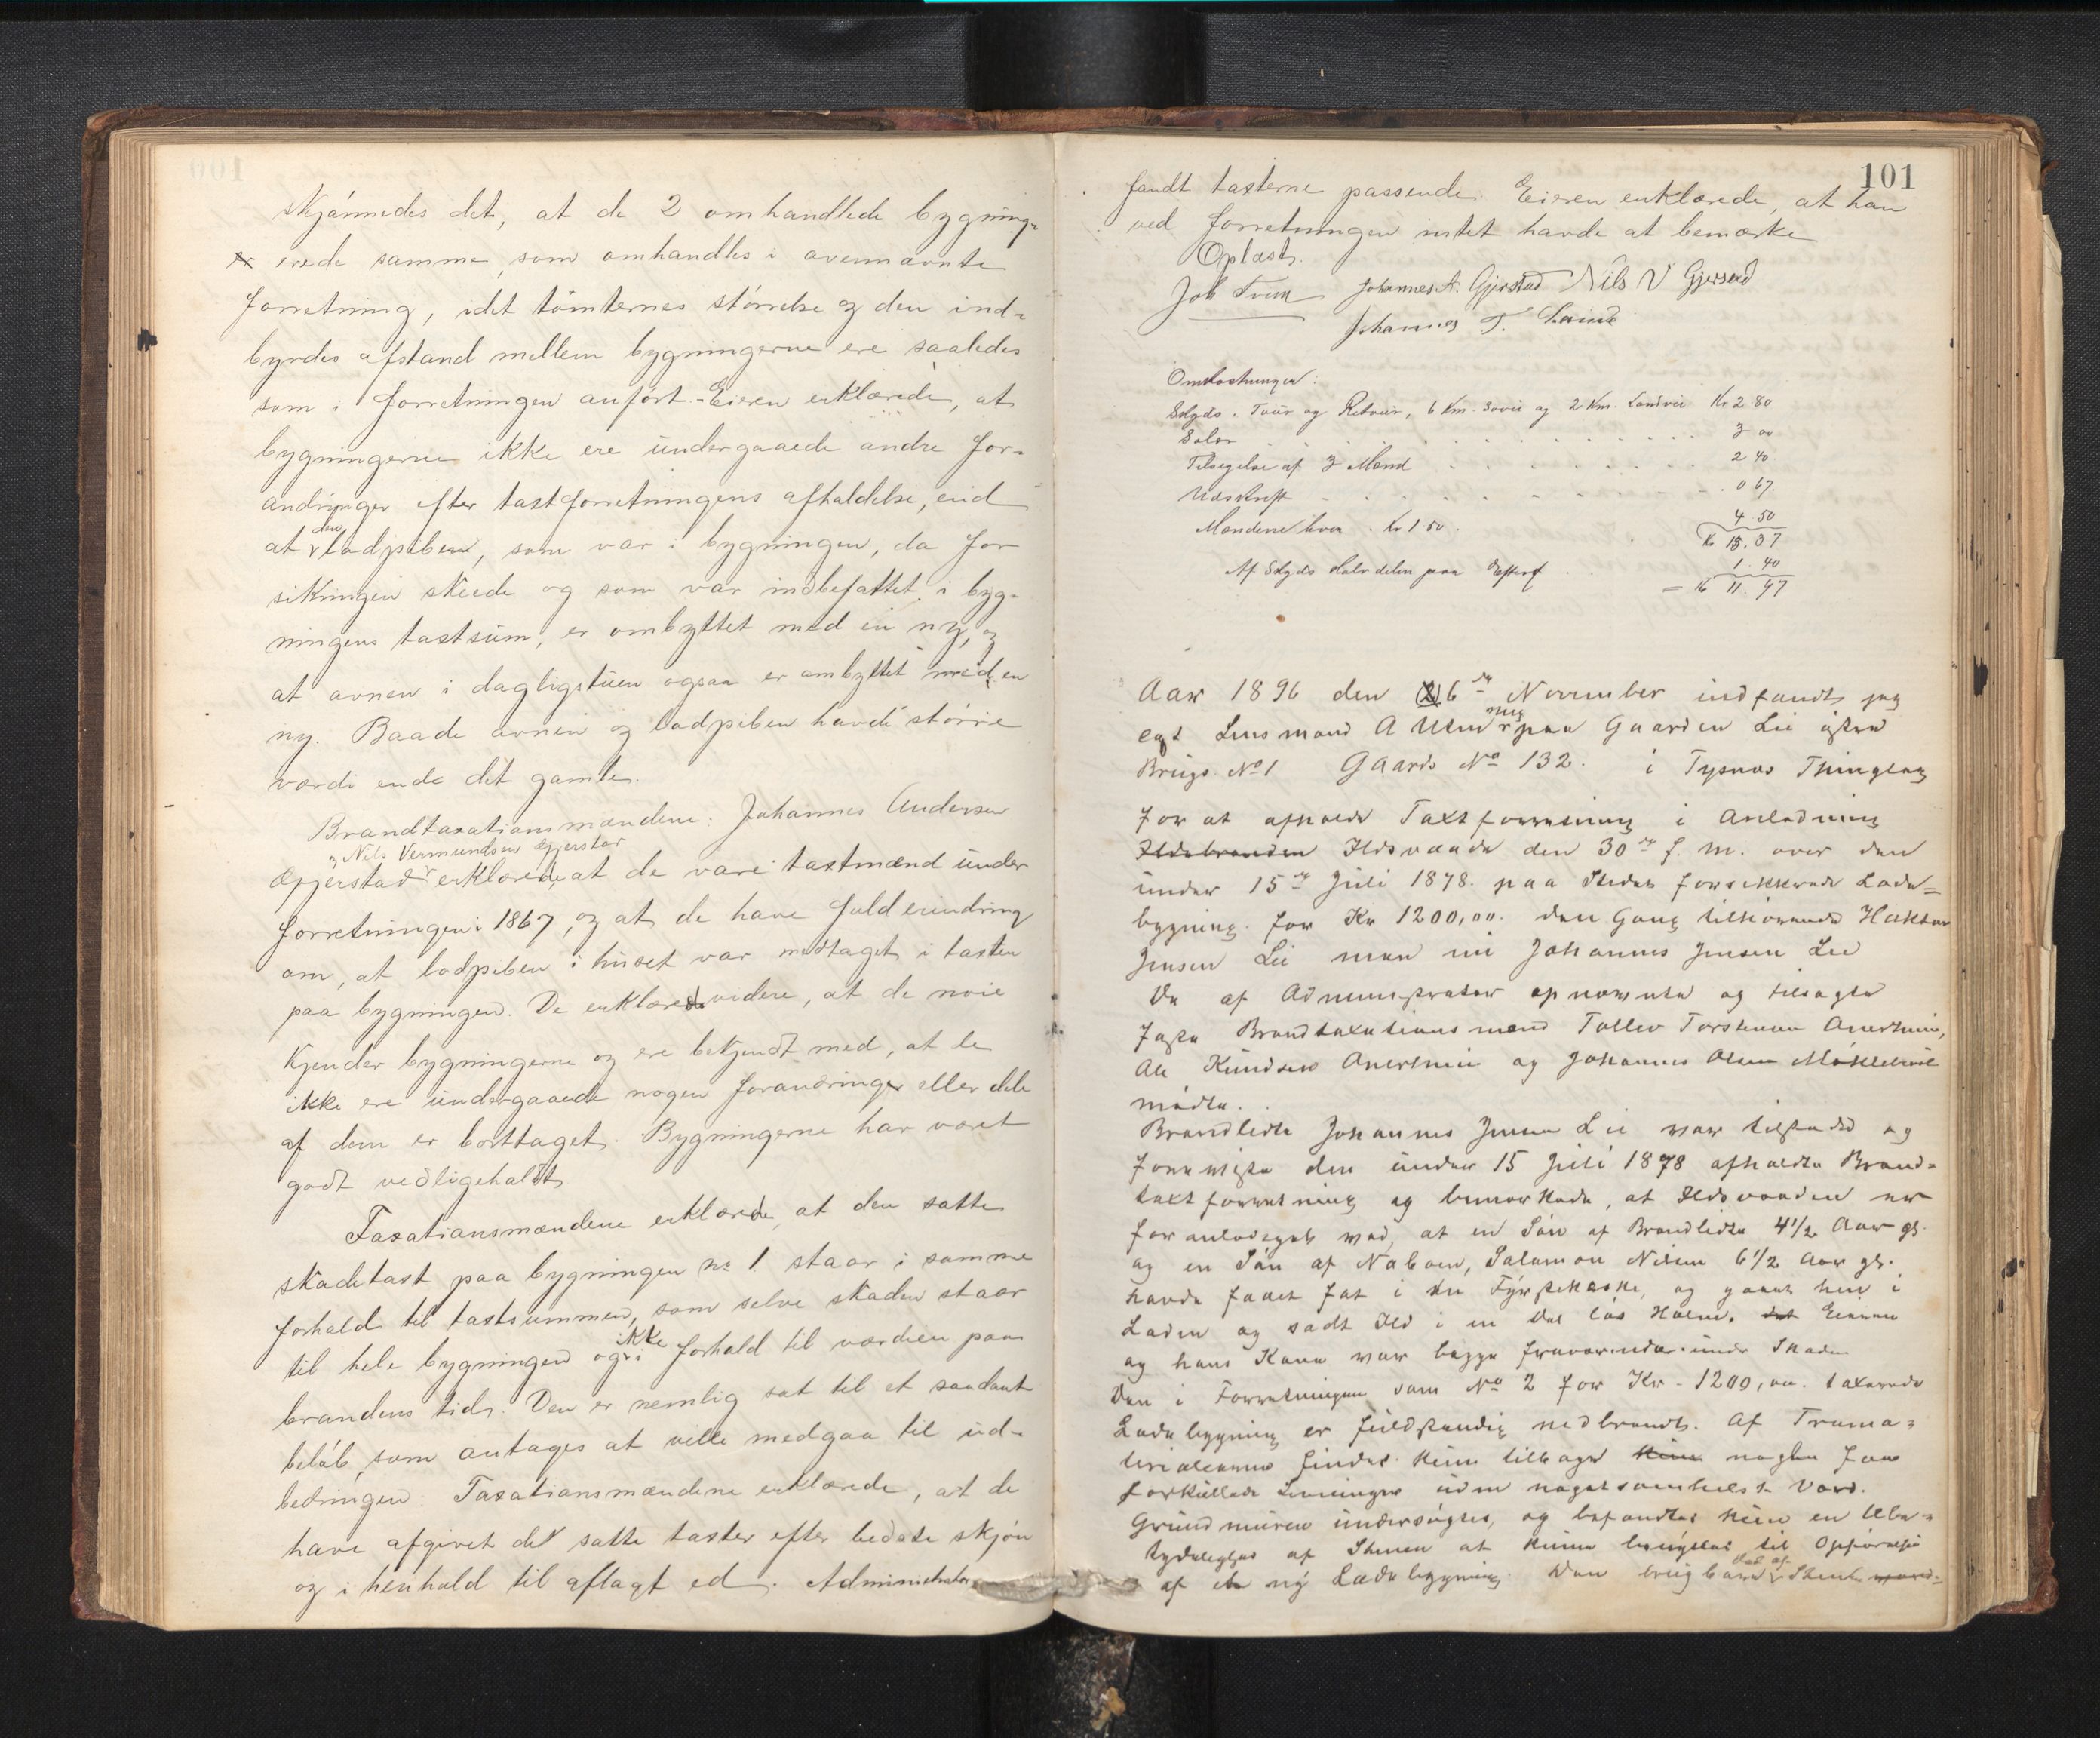 Skjønnedes det, at de 2 omhandlede bygning-
erede samme, som omhandles i ovennævnte
forretning, idet tomternes størrelse og den ind-
byrdes afstand mellem bygningerne ere saaledes
som i forretningen anført. - Eieren erklærede, at
bygningerne ikke ere undergaaede andre for-
andringer efter taxtforretningens afholdelse, end
at den ladpiben, som var i bygningen, da for
sikringen skeede og som var indbefattet i byg-
ningens taxtsum, er ombyttet med en ny, og
at ovnen i dagligstuen ogsaa er ombyttet med en
ny. Baade ovnen og ladpiben havde større
værdi ende det gamle.
Brandtaxationsmændene: Johannes Andersen
og Nils Vermundsen Gjerstad
Gjerstad erklærede, at de vare taxtmænd under
forretningen i 1867, og at de have fuld erindring
om, at ladpiben i huset var medtaget i taxten
paa bygningen. De erklærede videre, at de nøie
kjender bygningerne og ere bekjendt med, at de
ikke ere undergaaede nogen forandringer eller dele
af dem er borttaget. Bygningerne har været
godt vedligeholdt
Taxationsmændene erklærede, at den satte
skadetaxt paa bygningen no 1 staar i samme
forhold til taxtsummen, som selve skaden staar
til hele bygningen og i ikke forhold til værdien paa
brandens tid. Den er nemlig sat til et saadant
beløb, som antages at ville medgaa til ud-
bedringen. Taxationsmændene erklærede, at de
have afgivet det satte taxter efter bedste skjøn
og i henhold til aflagt ed. Administrator
101
fandt taxterne passende. Eieren erklærede, at han
ved forretningen intet havde at bemærke
Oplæst.
Johannes A. Gjerstad Nils V Gjerstad
Johannes T.
Omkostninger:
Skyds, Tour og Retour, 6 Km. Søvei og 2 Km. Landvei Kr 2 80
Salær 3 00
Tilsigelse af 3 Mænd 2 40
Udskrift 0 67
Mændene hver Kr 1 50 4.50
Kr 13.37
Af Skyds Halvdelen paa 1.40
= Kr 11.97
Aar 1896 den 6te November indfandt jeg
cst Lensmand A mig paa Gaarden Lie østre
Brugs No 1 Gaards No 132. i Tysnæs Thinglag
for at afholde Taxtforretning i Anledning
Ildsbranden Ildsvaade den 30te f. M. over den
under 15de Juli 1878 paa Stedet forsikkrede Lade-
bygning for Kr 1200,00. den Gang tilhørende Haktor
Jensen Lie men nu Johannes Jensen Lie
De af Administrator opnævnte og tilsagte
faste Brandtaxationsmænd Tollev Torstensen
Ole Knudsen og Johannes Olsen
mødte.
Brandlidte Johannes Jensen Lie var tilstede og
foreviste den under 15 Juli 1878 afholdte Brand-
taxtforretning og bemærkede, at Ildsvaaden er
foranlediget ved, at en Søn af Brandlidte 4½ Aar gl.
og en Søn af Naboen, Salamon Nilsen 6½ Aar gl.
havde faaet fat i en Fyrstikæske, og gaaet hen i
Laden og sadt Ild i en Del løs Halm. det Eieren
og hans Kone var begge fraværende under Skaden
Den i Forretningen som No 2 for Kr - 1200,00. taxerede
Ladebygning er fuldstændig nedbrændt. Af Træma-
terialerne findes kun tilbage kun nogle faa
forkullede Levninger uden nogetsomhelst Værd.
Grundmuren undersøgtes, og befandtes kun en Ube-
tydelighed af Stenen at kunne benyttes til Opførelse
af en ny Ladebygning. Den brugbare del af Stenen